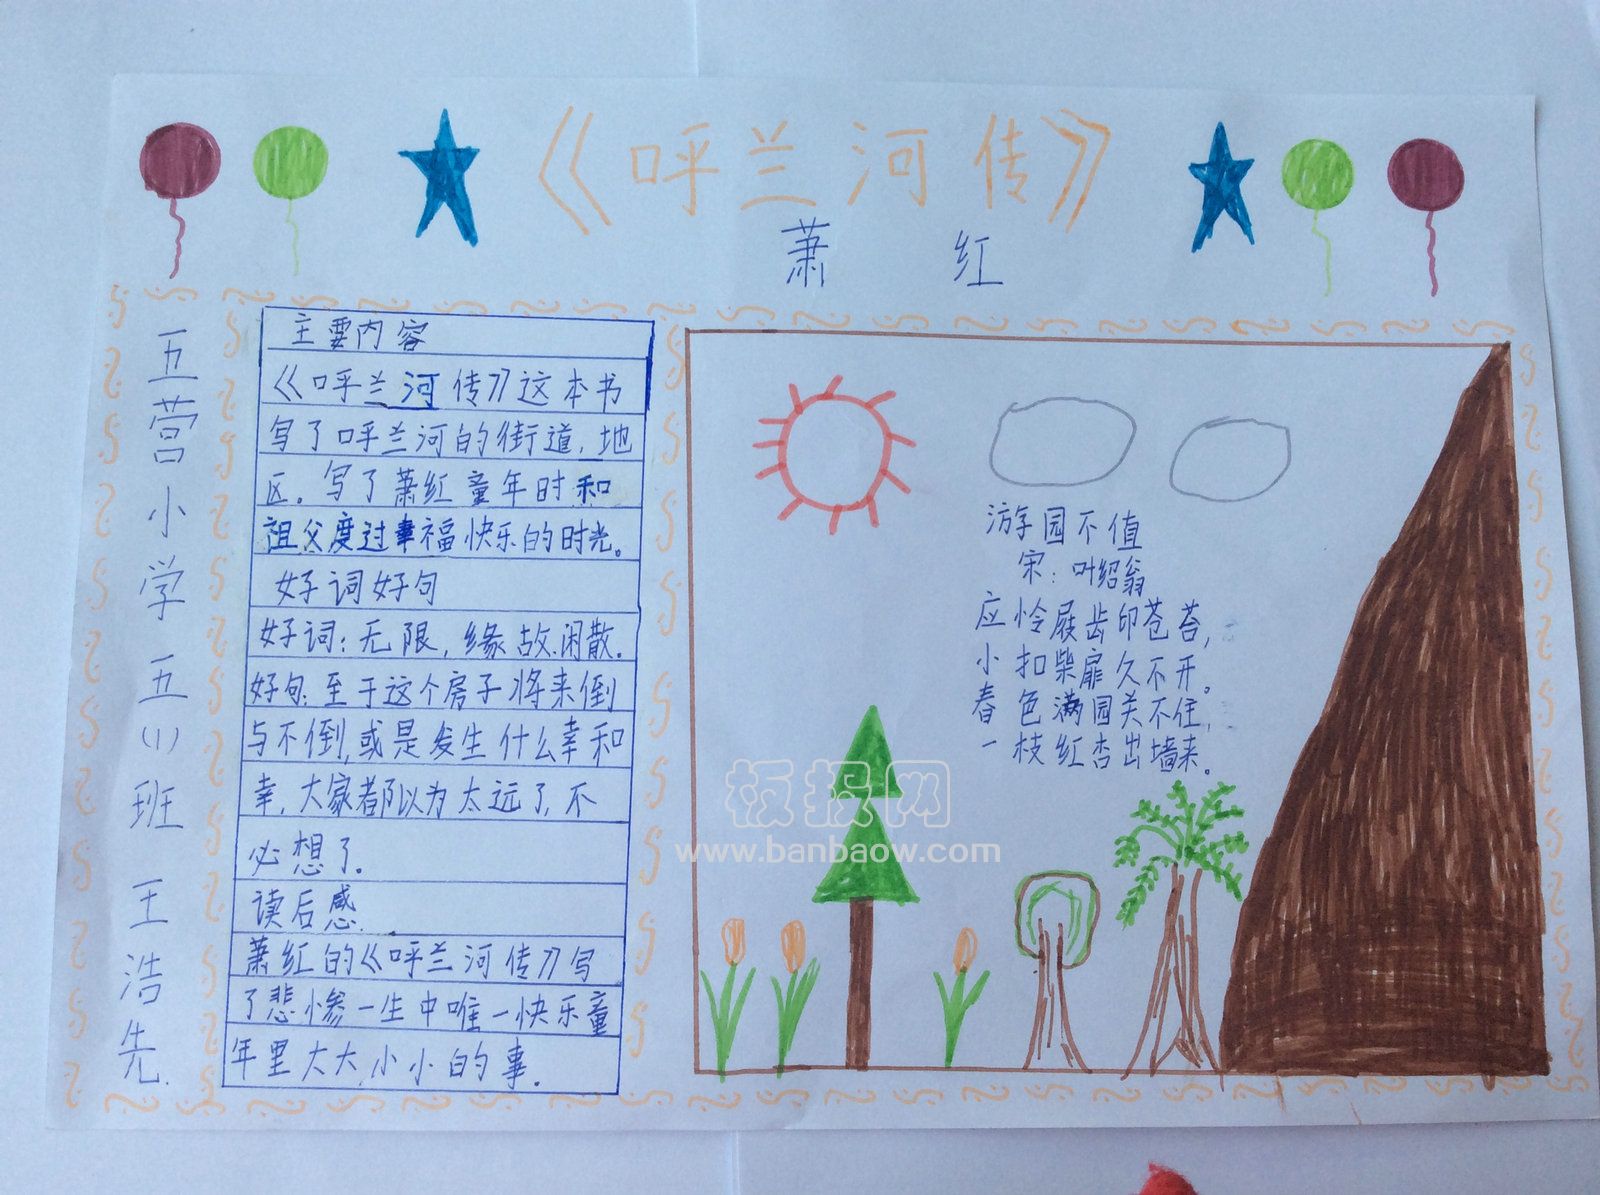 《呼兰河传》
萧 红
五营小学五(1)班 王浩先
主要内容
《呼兰河传》这本书
写了呼兰河的街道，地
区。写了萧红童年时和
祖父度过幸福快乐的时光。
好词好句
好词：无限，缘故.闲散.
好句：至于这个房子将来倒
与不倒，或是发生什么幸和
幸，大家都以为太远了，不
必想了.
读后感
萧红的《呼兰河传》写
了悲惨一生中唯一快乐童
年里大大小小的事.
游园不值
宋：叶绍翁
应怜屐齿印苍苔，
小扣柴扉久不开。
春色满园关不住，
一枝红杏出墙来。
板报网
www.banbaow.com